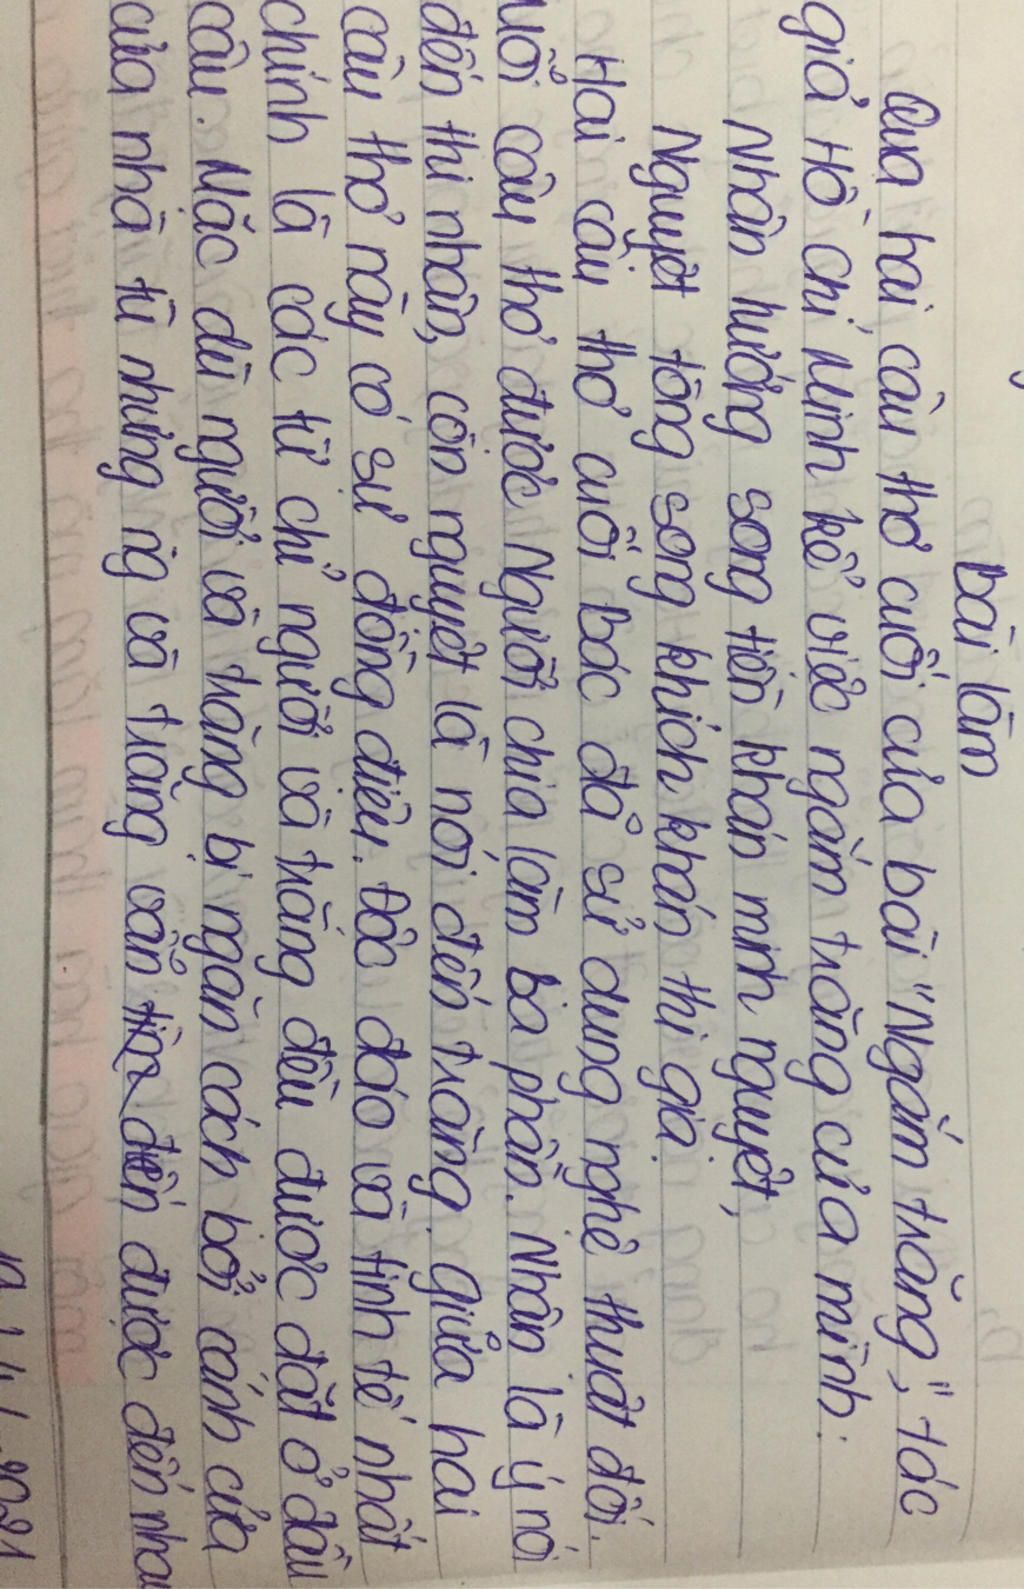 Bài làm
Qua hai câu thơ cuối của bài "Ngắm trăng", tác
giả Hồ Chí Minh kể việc ngắm trăng của mình:
Nhân hướng song tiền khán minh nguyệt,
Nguyệt tòng song khích khán thi gia.
Hai câu thơ cuối Bác đã sử dụng nghệ thuật đối.
Mỗi câu thơ được Người chia làm ba phần. Nhân là ý nói
đến thi nhân, còn nguyệt là nói đến trăng. Giữa hai
câu thơ này có sự đồng điệu. Độc đáo và tinh tế nhất
chính là các từ chỉ người và trăng đều được đặt ở đầu
câu. Mặc dù người và trăng bị ngăn cách bởi cánh cửa
của nhà tù nhưng ng và trăng vẫn đến được đến nhau
2021